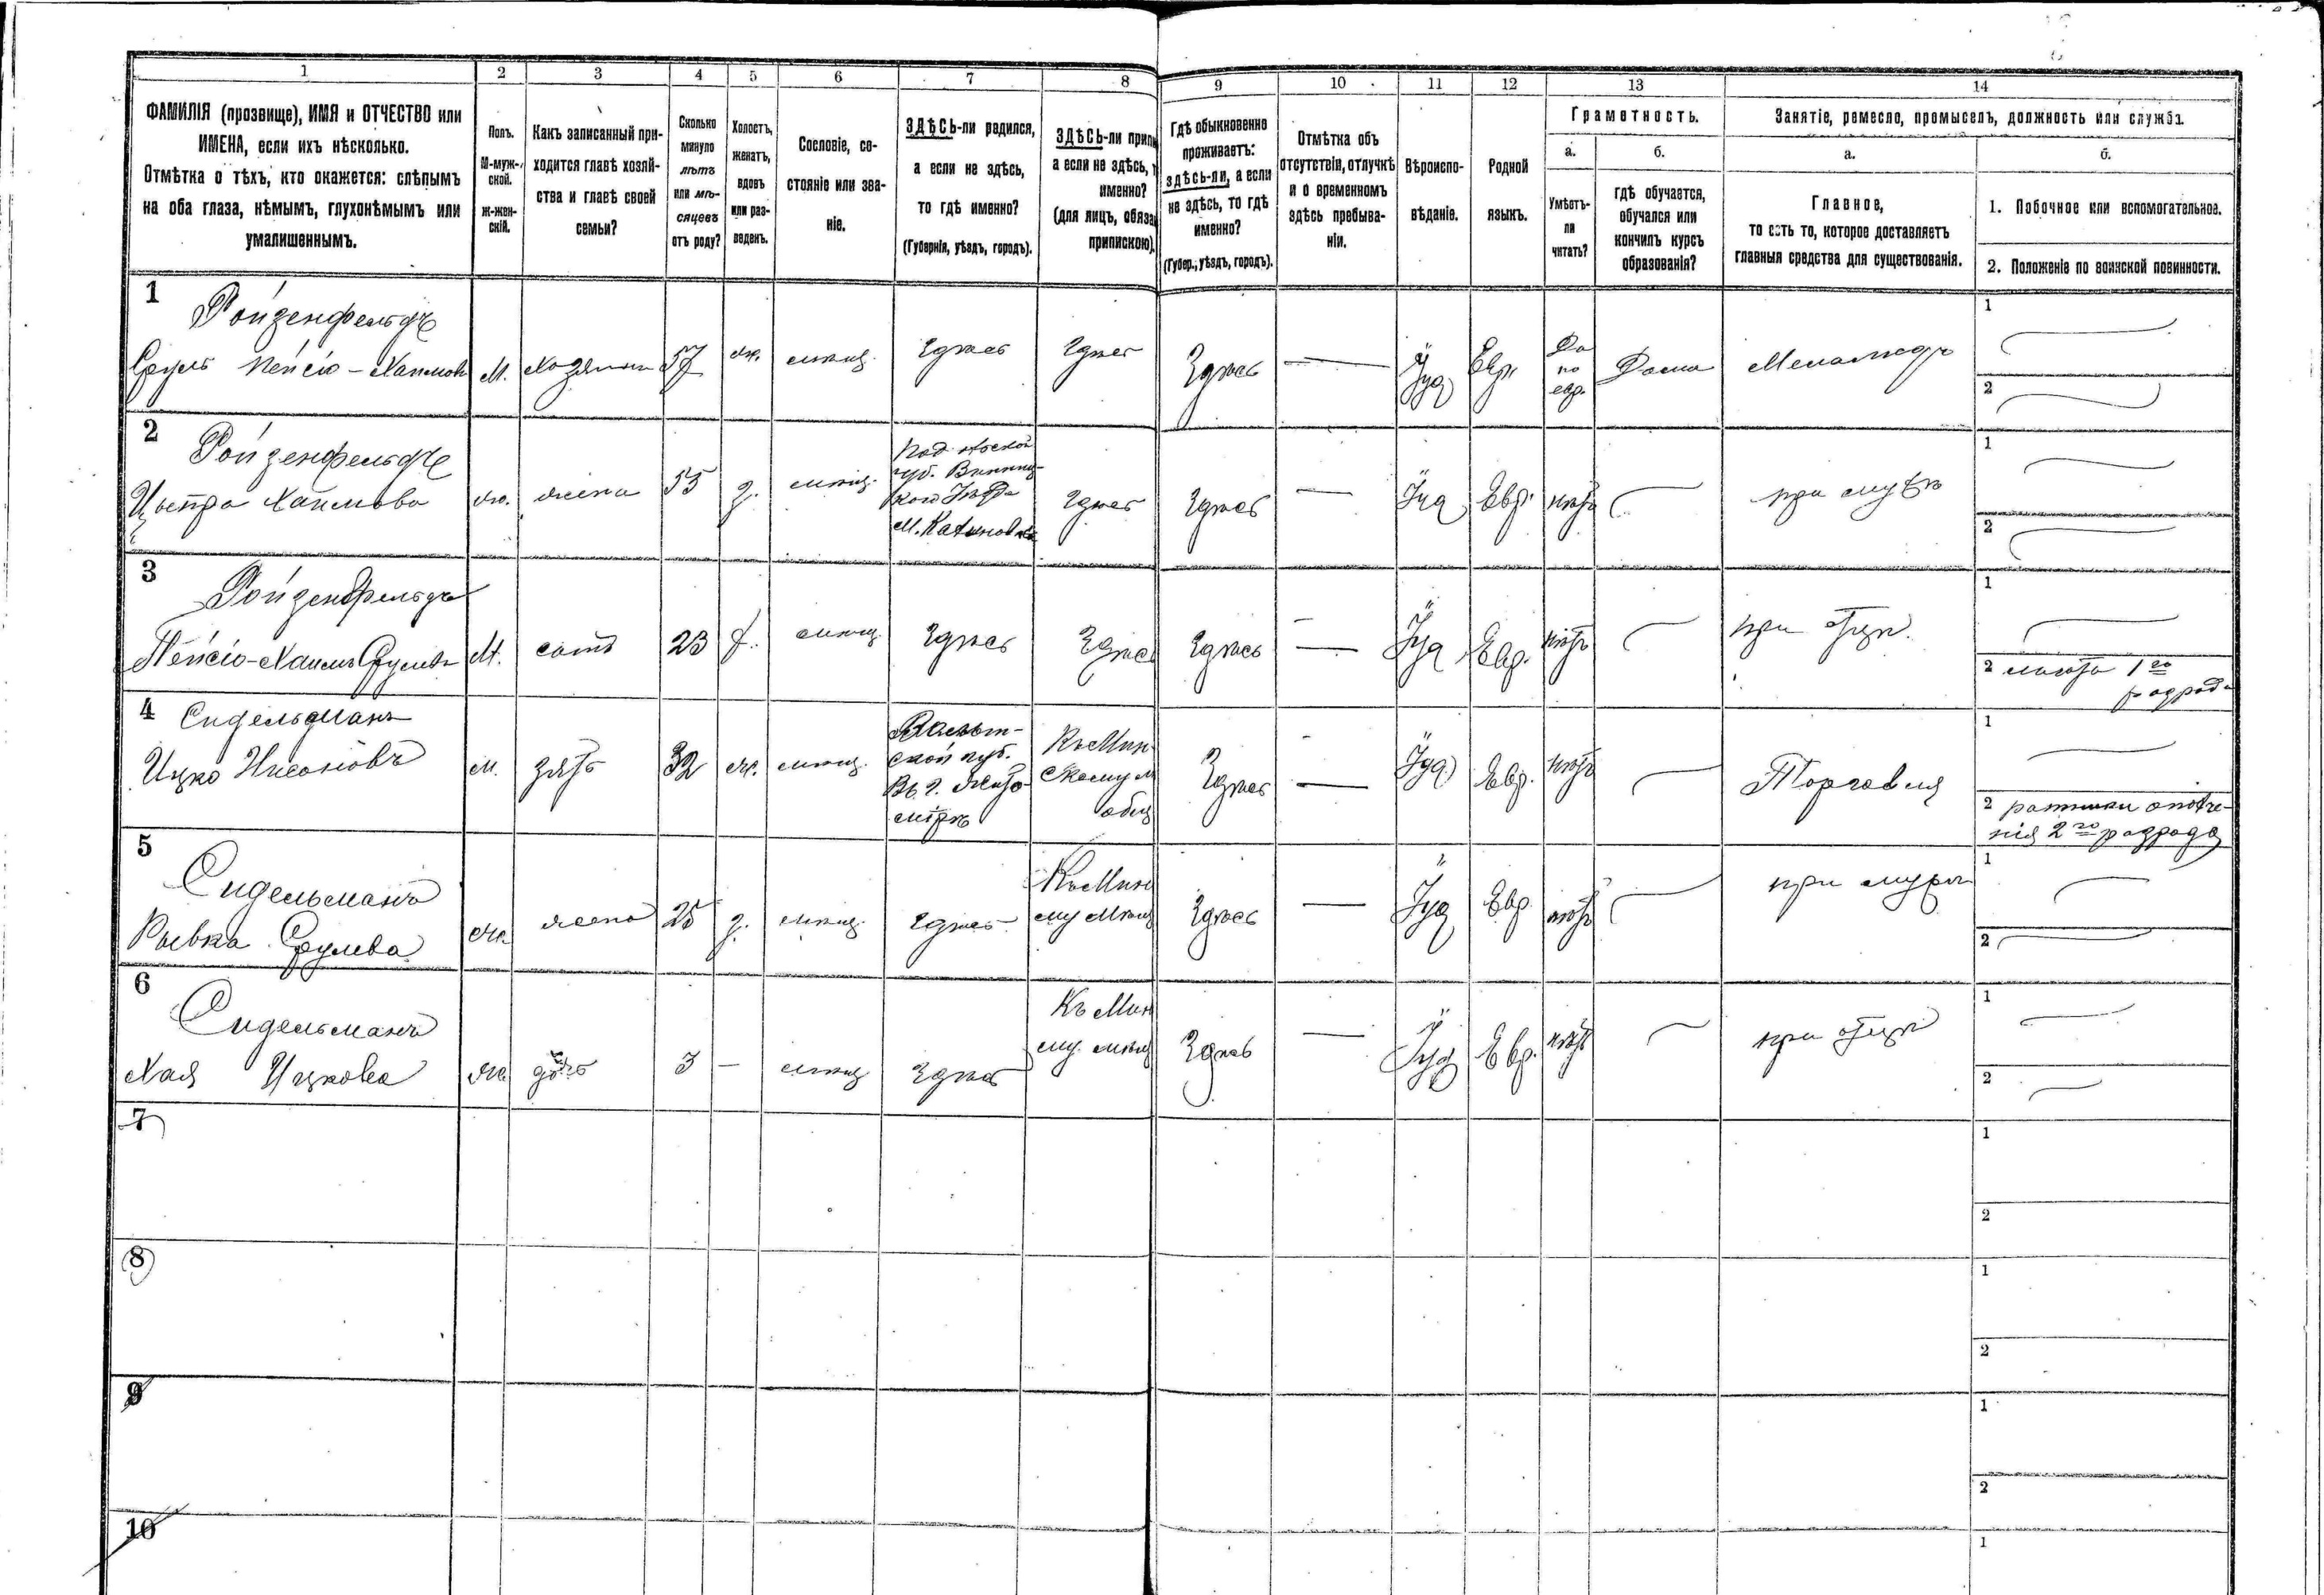 1 2 3 4 5 6 7 8 9 10 11 12 13 14
ФАМИЛІЯ (прозвище), ИМЯ и ОТЧЕСТВО или
ИМЕНА, если ихъ нѣсколько.
Отмѣтка о тѣхъ, кто окажется: слѣпымъ
на оба глаза, нѣмымъ, глухонѣмымъ или
умалишеннымъ.
Полъ.
М-муж-
ской.
Ж-жен-
скій.
Какъ записанный при-
ходится главѣ хозяй-
ства и главѣ своей
семьи?
Сколько
минуло
лѣтъ
или мѣ-
сяцевъ
отъ роду?
Холостъ,
женатъ,
вдовъ
или раз-
веденъ.
Сословіе, со-
стояніе или зва-
ніе.
ЗДѢСЬ-ли родился,
а если не здѣсь,
то гдѣ именно?
(Губернія, уѣздъ, городъ).
ЗДѢСЬ-ли
а если не здѣсь,
именно?
(для лицъ,
припискою).
Гдѣ обыкновенно
проживаетъ:
здѣсь-ли, а если
не здѣсь, то гдѣ
именно?
(Губер., уѣздъ, городъ).
Отмѣтка объ
отсутствіи, отлучкѣ
и о временномъ
здѣсь пребыва-
ніи.
Вѣроиспо-
вѣданіе.
Родной
языкъ.
Грамотность.
а.
Умѣетъ-
ли
читать?
б.
гдѣ обучается,
обучался или
кончилъ курсъ
образованія?
Занятіе, ремесло, промыселъ, должность или служба.
а.
Главное,
то есть то, которое доставляетъ
главныя средства для существованія.
б.
1. Побочное или вспомогательное.
2. Положеніе по воинской повинности.
1
Ройзенфельдъ
Сруль Пейсіо-Хаимовъ М. Хозяинъ 57 ж. мѣщ. Здѣсь Здѣсь Здѣсь — Іуд Евр.
Да
по
евр.
Дома Меламедъ
1
2
2
Ройзенфельдъ
Цыпра Хаимова ж. жена 55 з. мѣщ.
Подольской
губ. Винниц-
кого Уѣзда
М. Калиновка
Здѣсь Здѣсь — Іуд Евр. нѣтъ при мужѣ
1
2
3
Ройзенфельдъ
Пейсіо-Хаимъ Срулевъ М. сынъ 23 х. мѣщ. Здѣсь Здѣсь Здѣсь — Іуд Евр. нѣтъ при отцѣ.
1
2 льгота 1го
разряда
4 Сидельманъ
Ицко Нисоновъ м. зять 32 ж. мѣщ.
Волын-
ской губ.
Въ г. Жито-
мірѣ
Къ Мин
скому м
общ
Здѣсь — Іуд Евр. нѣтъ Торговля
1
2 ратникъ ополче-
нія 2го разряда
5
Сидельманъ
Рывка Срулева ж. жена 25 з. мѣщ. Здѣсь
Къ Мин
му Мѣщ
Здѣсь — Іуд Евр нѣтъ при мужѣ
1
2
6
Сидельманъ
Хая Ицкова ж. дочь 3 — мѣщ Здѣсь
Къ Мин
му. мѣщ
Здѣсь — Іуд Евр. нѣтъ при отцѣ
1
2
7
1
2
8
1
2
9
1
2
10
1